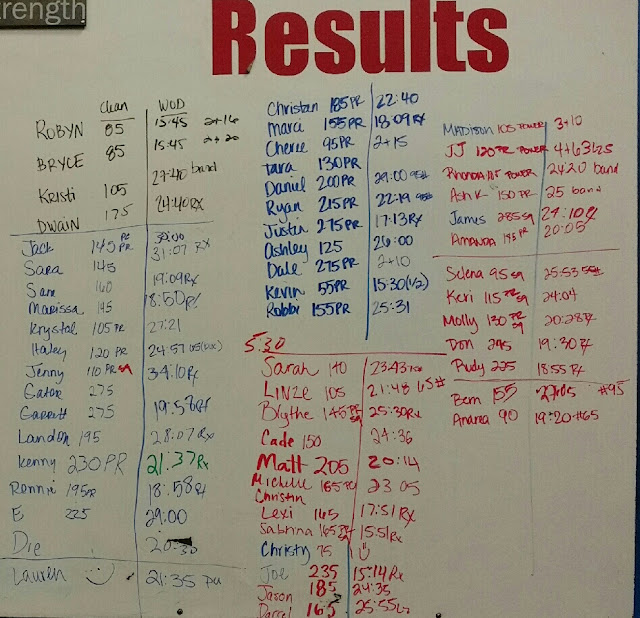 trength
Results
Clean WOD
ROBYN 85 15:45 2+16
BRYCE 85 15:45 2+20
Kristi 105 27:40 band
DWAIN 175 24:40 RX
Jack 145 PR 30:00
Sara 145 31:07 RX
Sam 160 19:09 Rx
Marissa 145 18:50
Krystal 105 PR 27:21
Haley 120 PR 24:57
Jenny 110 PR 34:10 Rx
Gator 275
Garrett 275 19:58
Landon 195 28:07 Rx
Kenny 230 PR 21:37 Rx
Rennie 195 PR 18:58 Rx
E 225 29:00
Die 20:30
Lauren 21:35
Christan 185 PR 22:40
Marci 155 PR 18:09 RX
Cherie 95 PR 2+15
Tara 130 PR
Daniel 200 PR 29:00 95#
Ryan 215 PR 22:19 95#
Justin 275 PR 17:13 Rx
Ashley 125 26:00
Dale 275 PR 2+10
Kevin 55 PR 15:30 (1/2)
Robbi 155 PR 25:31
5:30
Sarah 140 23:43
LiNZE 105 21:48 65#
Blythe 145 PR 25:30 Rx
Cade 150 24:36
Matt 205 20:14
Michelle 165 PR 23 05
Christin
Lexi 165 17:51 RX
Sabrina 165 PR 15:51 Rx
Christy 75
Joe 235 15:14 Rx
Jason 185 24:35
Darrel 165 25:55
MADISON 105 POWER 3+10
JJ 120 PR POWER 4+63
Rhonda POWER 24:20 band
Ash K 150 PR 25 band
James 285 SQ 29:10
AMANDA 145 PR 20:05
Selena 95 SQ 25:53 55#
Keri 115 PR SQ 24:04
Molly 130 PR SQ 20:28 Rx
Don 245 19:30 Rx
Rudy 225 18:55 Rx
Bem 155 27:05 #95
Andrea 90 19:20 #65